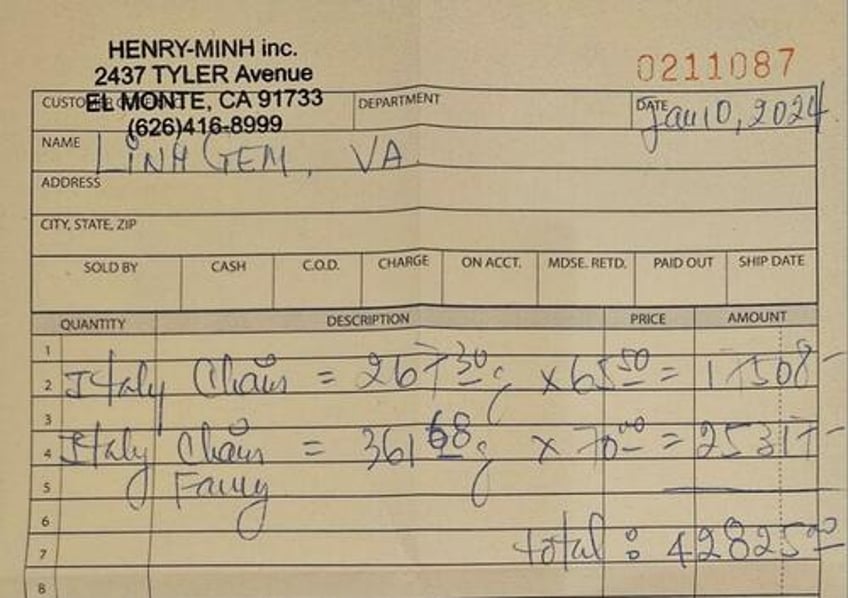 HENRY-MINH inc.
2437 TYLER Avenue
EL MONTE, CA 91733
(626)416-8999
0211087
CUSTOMER ORDER NO. DEPARTMENT DATE Jan 10, 2024
NAME LINH GEM, VA
ADDRESS
CITY, STATE, ZIP
SOLD BY CASH C.O.D. CHARGE ON ACCT. MDSE. RETD. PAID OUT SHIP DATE
QUANTITY DESCRIPTION PRICE AMOUNT
1
2 Italy Chain = 267 30 g x 65 50 = 17508 -
3
4 Italy Chain = 361 68 g x 70 00 = 25317 -
5 Fancy
6
7 total : 42825 00
8